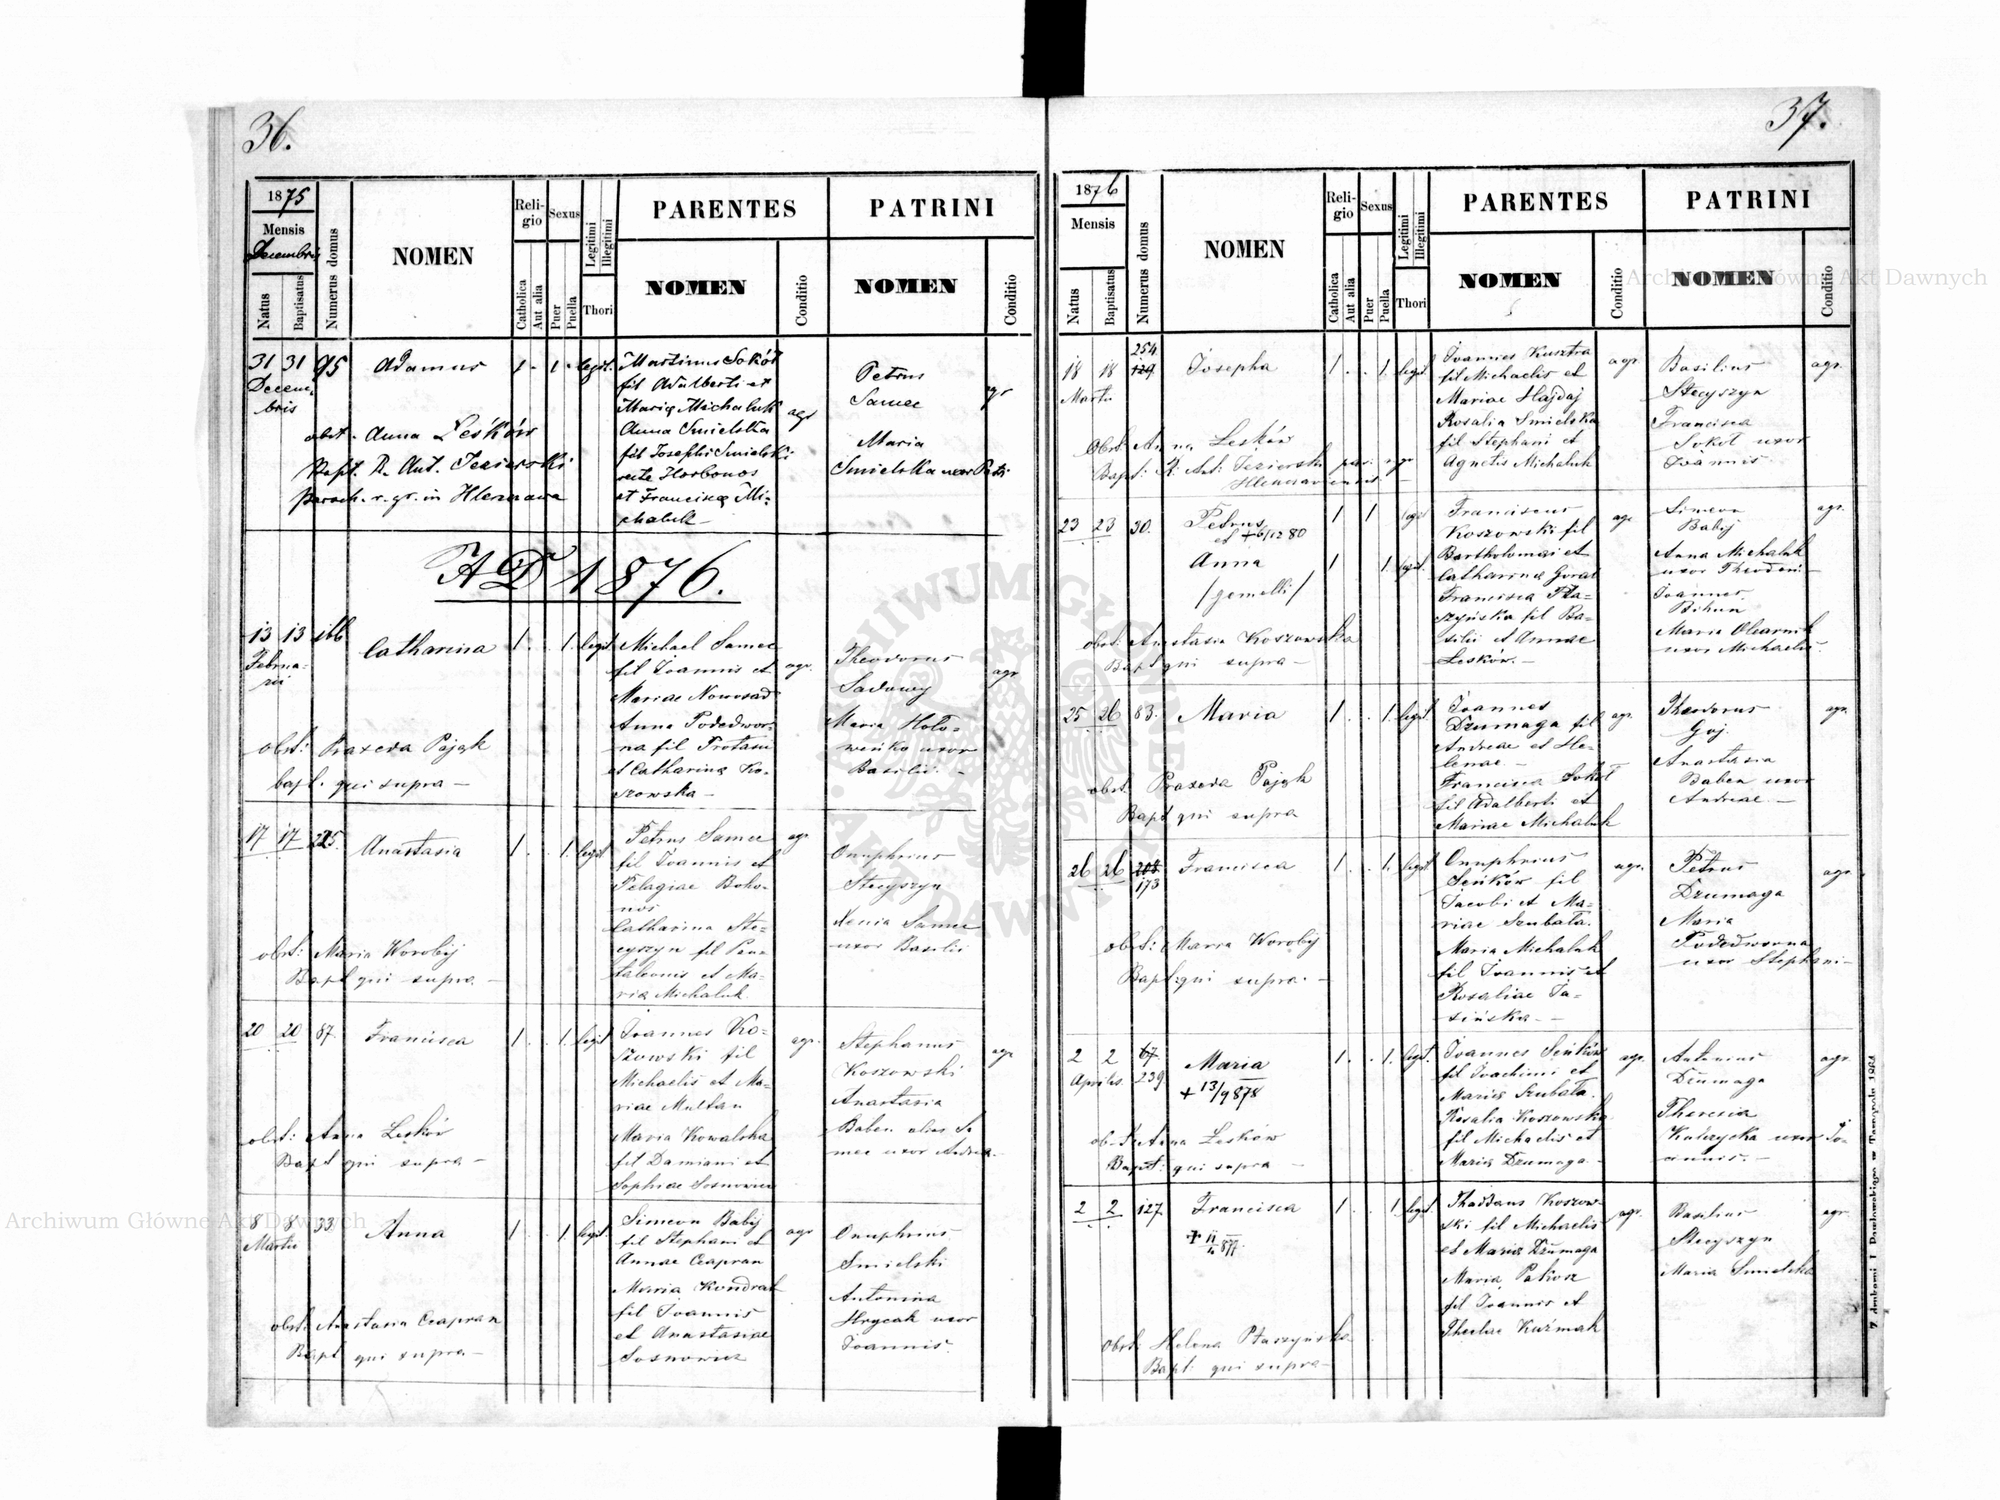 36.
1875
Mensis
Decembris
Natus
Baptisatus
Numerus domus
NOMEN
Reli-
gio
Catholica
Aut alia
Sexus
Puer
Puella
Legitimi
Illegitimi
Thori
PARENTES
NOMEN
Conditio
PATRINI
NOMEN
Conditio
31 31 95 Adamus 1 . 1 . legit.
Decem-
bris
obst. Anna Leśków
Bapt. R. Ant. Jezierski
paroch. r. gr. in
Martinus Sokół
fil Adalberti et
Maria Michaluk
Anna Smielska
fil Josephi Smielski
recte Horbonos
et Francisca Mi-
chaluk
agr
Petrus
Samec
Maria
Smielska uxor Petri
agr
AD 1876.
13 13 Catharina 1 . . 1. legit.
Februa-
rii
obst: Praxeda Pająk
bapt. qui supra —
Michael Samec
fil Joannis et
Mariae Nowosad
Anna Podedwor-
na fil Protasii
et Catharina Ko-
szowska —
agr.
Theodorus
Sadowy
Maria Hoło-
weńko uxor
Basilii. —
agr
17 17 225. Anastasia 1 . . 1. legit
obst: Maria Worobij
Bapt qui supra —
Petrus Samec
fil Joannis et
Pelagiae Boho-
nos
Catharina Ste-
cyszyn fil Pan-
taleonis et Ma-
ria Michaluk
agr
Onuphrius
Stecyszyn
Xenia Samec
uxor Basilii
20 20 87. Francisca 1 . . 1. legit
obst: Anna Leśków
Bapt qui supra —
Joannes Ko-
szowski fil
Michaelis et Ma-
riae Multan
Maria Kowalska
fil Damiani et
Sophiae Sosnowicz
agr.
Stephanus
Koszowski
Anastasia
Baben alias Sa
mec uxor Andrea.
agr
8 8 33 Anna 1 . . 1 legit.
Martii
obst: Anastasia Czapran
Bapt qui supra —
Simeon Babij
fil Stephani et
Annae Czapran
Maria Kondrat
fil Joannis
et Anastasiae
Sosnowicz
agr
Onuphrius
Smielski
Antonina
Hrycak uxor
Joannis.
37.
1876
Mensis
Natus
Baptisatus
Numerus domus
NOMEN
Reli-
gio
Catholica
Aut alia
Sexus
Puer
Puella
Legitimi
Illegitimi
Thori
PARENTES
NOMEN
Conditio
PATRINI
NOMEN
Conditio
254
18 18 129 Josepha 1 . . 1. legit.
Martii
Obst: Anna Leśków
Bapt: R. Ant: Jezierski
Joannes Kusztra
fil Michaelis et
Mariae Hajdaj
Rosalia Smielska
fil Stephani et
Agnetis Michaluk
agr
Basilius
Stecyszyn
Francisca
Sokoł uxor
Joannis
agr.
23 23 30. Petrus 1 1 legit
et +6/12 80
Anna 1 1. legit.
/gemelli/
obst: Anastasia Koszowska
Bapt qui supra —
Franciscus
Koszowski fil
Bartholomai et
Catharina Goral
Francisca Pta-
szyńska fil Ba-
silii et Annae
Leśków. —
agr
Simeon
Babij
Anna Michaluk
uxor Theodori —
Joannes
Bihun
Maria Olearnik
uxor Michaelis.
agr.
25 26 83. Maria 1 . . 1. legit.
obst. Praxeda Pająk
Bapt qui supra
Joannes
Dzumaga fil
Andreae et He-
lenae. —
Francisca Sokoł
fil Adalberti et
Mariae Michaluk
agr.
Theodorus
Goj
Anastasia
Baben uxor
Andreae. —
agr.
26 26 208 Francisca 1 . . 1. legit.
173
obst: Maria Worobij
Bapt qui supra. —
Onuphrius
Seńków fil
Jacobi et Ma-
riae Szubała.
Maria Michaluk
fil Joannis et
Rosaliae Ja-
sińska. —
agr.
Petrus
Dzumaga
Maria
Podedworna
uxor Stephani —
agr.
2 2 67. Maria 1 . . 1. legit.
Aprilis. 239. + 13/9 878
obst: Anna Leśków
Bapt: qui supra —
Joannes Seńków
fil Joachimi et
Maria Szubała.
Rosalia Koszowska
fil Michaelis et
Maria Dzumaga. —
agr.
Antonius
Dzumaga
Theresia
uxor Jo-
annis. —
agr.
2 2 127. Francisca 1 . . 1 legit.
Obst: Helena Ptaszyńska
Bapt: qui supra —
Thaddaus Koszow-
ski fil Michaelis
et Maria Dzumaga
Maria Pakosz
fil Joannis et
Theclae Kuźmak
agr.
Basilius
Stecyszyn
Maria Smielska
agr.
Z drukarni J. Pawłowskiego w Tarnopolu 1864
ARCHIWUM GŁÓWNE AKT DAWNYCH
Archiwum Główne Akt Dawnych
Archiwum Główne Akt Dawnych